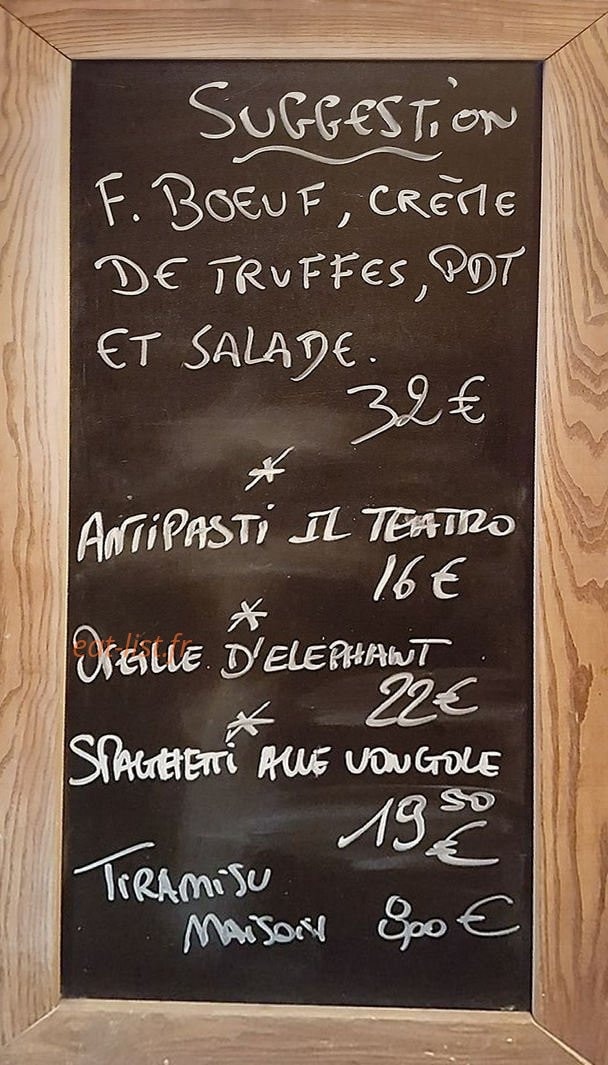 SUGGESTION
F. BOEUF, CRÈME
DE TRUFFES, PDT
ET SALADE.
32€
*
ANTIPASTI IL TEATRO
16€
*
eat-list.fr
OREILLE D'ELEPHANT
22€
*
SPAGHETTI ALLE VONGOLE
19 50 €
TIRAMISU
MAISON 8,00€